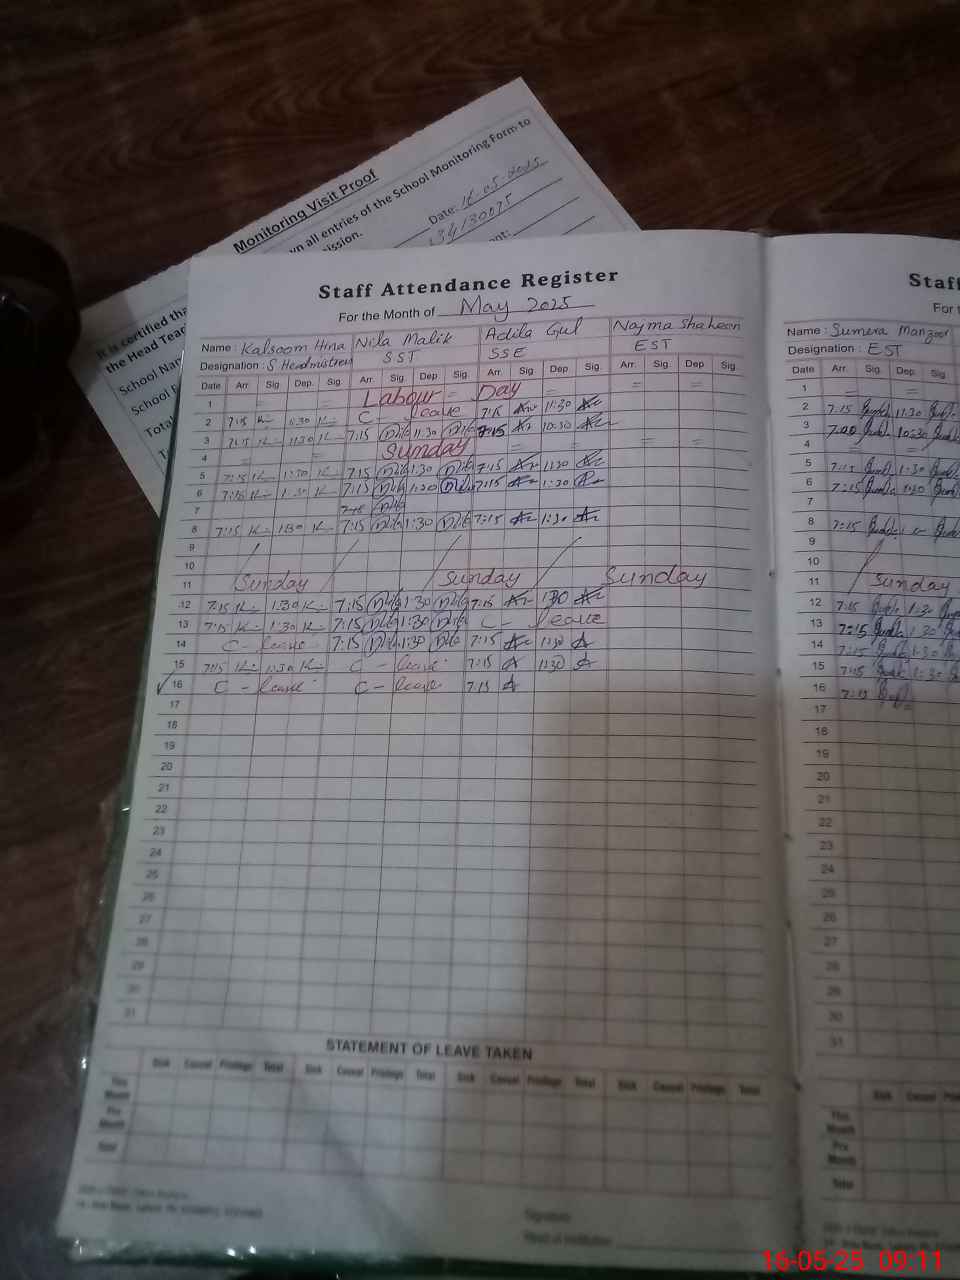 Monitoring Visit Proof
wn all entries of the School Monitoring Form to
mission.
Date: 16-05-2025
34130075
It is certified tha
the Head Teac
School Nam
School E
Tota
Staff Attendance Register
For the Month of May 2025
Name: Kalsoom Hina Nila Malik Adila Gul Najma Shaheen
Designation: S Headmistress SST SSE EST
Date Arr. Sig. Dep. Sig. Arr. Sig. Dep. Sig. Arr. Sig. Dep. Sig. Arr. Sig. Dep. Sig.
1 = = Labour = Day = = =
2 7:15 11:30 C - leave 7:15 11:30
3 7:15 11:30 7:15 11:30 7:15 10:30
4 = = Sunday = = = =
5 7:15 1:30 7:15 1:30 7:15 1:30
6 7:15 1:30 7:15 1:30 7:15 1:30
7 7:15
8 7:15 1:30 7:15 1:30 7:15 1:30
9
10
11 Sunday Sunday Sunday
12 7:15 1:30 7:15 1:30 7:15 1:30
13 7:15 1:30 7:15 1:30 C - leave
14 C - leave 7:15 1:30 7:15 1:30
15 7:15 1:30 C - leave 7:15 1:30
16 C - leave C - leave 7:15
17
18
19
20
21
22
23
24
25
26
27
28
29
30
31
STATEMENT OF LEAVE TAKEN
Sick Casual Privilege Total Sick Casual Privilege Total Sick Casual Privilege Total Sick Casual Privilege Total
This Month
Pre Month
Total
Signature
Head of Institution
Staff
For t
Name: Sumera Manzoor
Designation: EST
Date Arr. Sig. Dep. Sig.
1 = =
2 7:15 11:30
3 7:00 10:30
4 = =
5 7:15 1:30
6 7:15 1:30
7
8 7:15
9
10
11 Sunday
12 7:15 1:30
13 7:15 1:30
14 7:15 1:30
15 7:15 1:30
16 7:15
17
18
19
20
21
22
23
24
25
26
27
28
29
30
31
Sick Casual
This Month
Pre Month
Total
16-05-25 09:11